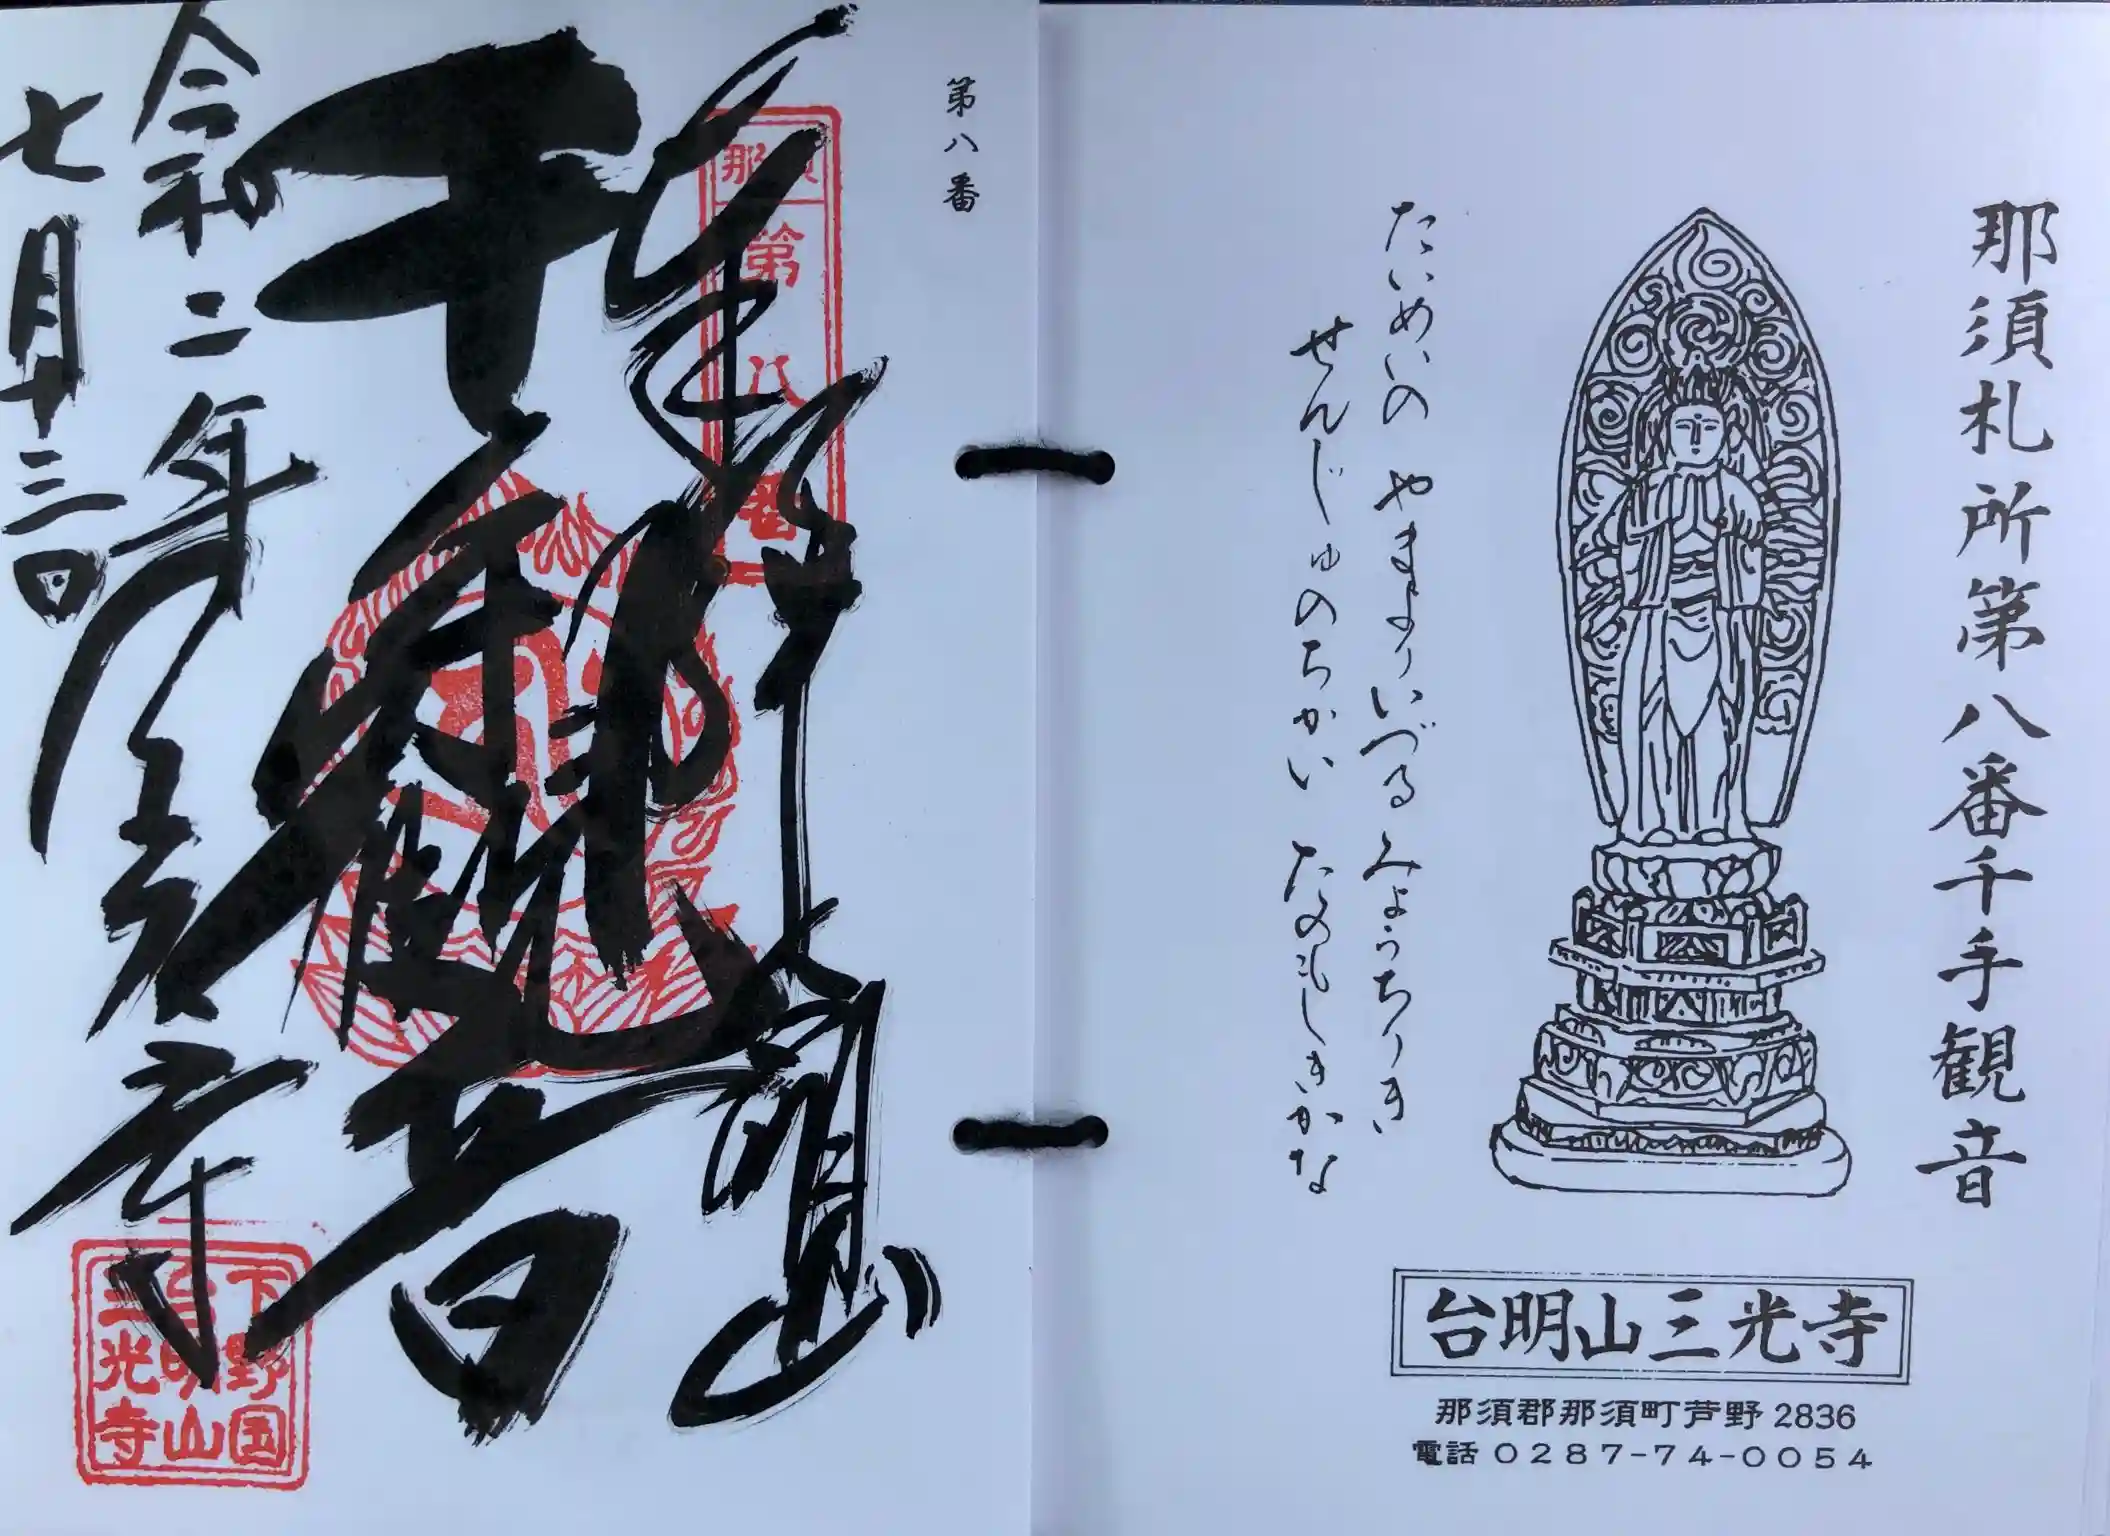 那須札所第八番千手観音
たいめいの やまよりいづる みょうちりき
せんじゅのちかい たのもしきかな
台明山三光寺
那須郡那須町芦野2836
電話 0287-74-0054
第八番
那須
第八番
千手観音
令和二年
七月十三日
三光寺
下野国
台明山
三光寺